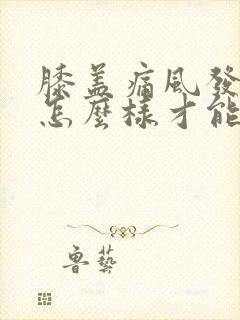 膝盖痛風發
怎麼樣才能
魯藝